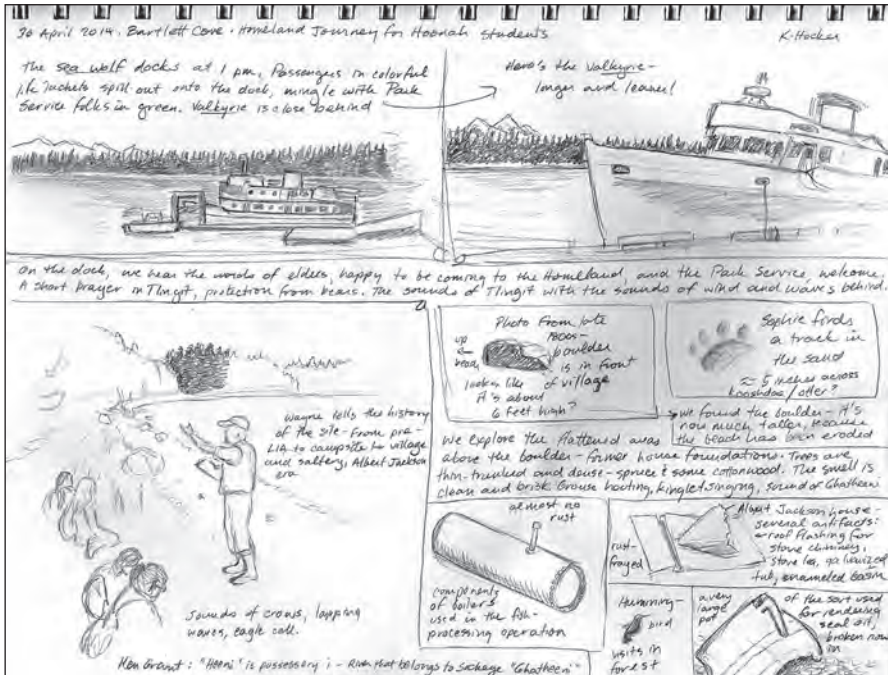 30 April 2014. Bartlett Cove. Homeland Journey for Hoonah Students
K. Hocker
the sea wolf docks at 1 pm. Passengers in colorful
life jackets spill out onto the dock, mingle with Park
Service folks in green. Valkyrie is close behind
Here's the Valkyrie-
longer and leaner!
On the dock, we hear the words of elders, happy to be coming to the Homeland, and the Park Service, welcome.
A short prayer in Tlingit, protection from bears. The sounds of Tlingit with the sounds of wind and waves behind.
Wayne tells the history
of the site - from pre-
LIA to campsite to village
and saltery, Albert Jackson
era
Sounds of crows, lapping
waves, eagle call.
Ken Grant: "Heeni" is possessory i - River that belongs to sockeye "Ghatheeni"
Photo from late
1800s-
boulder
is in front
of village
up
beach
looks like
it's about
6 feet high?
Sophie finds
a track in
the sand
≈ 5 inches across
kooshdaa/otter?
we found the boulder - it's
now much taller, because
the beach has been eroded
We explore the flattened areas
above the boulder - former house foundations. Trees are
thin-trunked and dense - spruce & some cottonwood. The smell is
clean and brisk. Grouse hooting, kinglet singing, sound of Ghatheeni
almost no
rust
components
of boilers
used in the fish-
processing operation
Albert Jackson house -
several artifacts:
roof flashing for
stove chimney,
stove leg, galvanized
tub, enameled basin
rust-
frayed
Humming-
bird
visits in
forest
a very
large
pot
of the sort used
for rendering
seal oil,
broken now
in